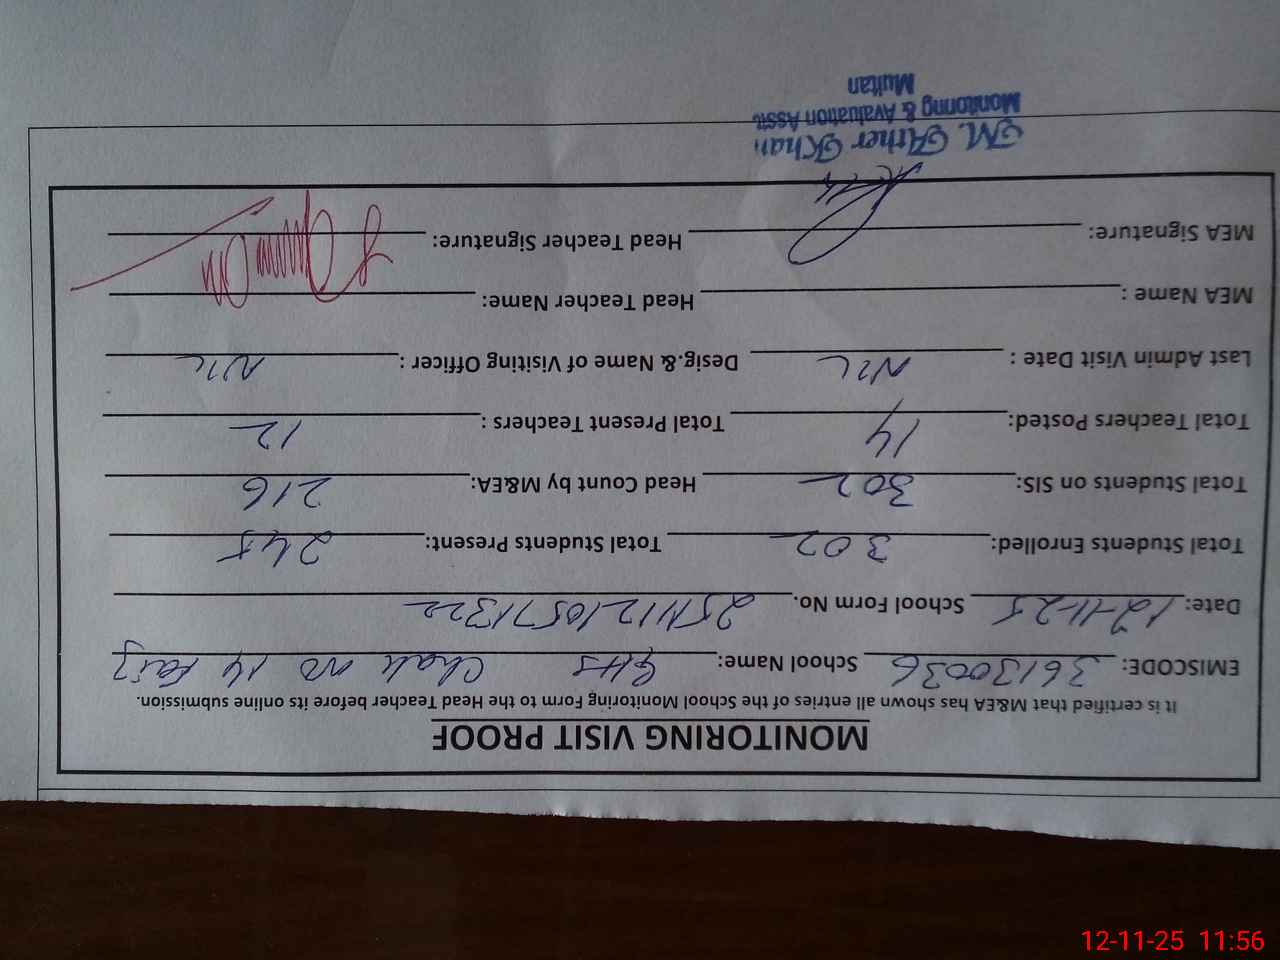 MONITORING VISIT PROOF
It is certified that M&EA has shown all entries of the School Monitoring Form to the Head Teacher before its online submission.
EMISCODE: 36130036 School Name: GHS Chak no 14 Faiz
Date: 12-11-25 School Form No. 25N11210571322
Total Students Enrolled: 302 Total Students Present: 245
Total Students on SIS: 302 Head Count by M&EA: 216
Total Teachers Posted: 14 Total Present Teachers : 12
Last Admin Visit Date : NIL Desig.& Name of Visiting Officer : NIL
MEA Name : Head Teacher Name:
MEA Signature: Head Teacher Signature:
M. Ather Khan
Monitoring & Avaluation Asstt.
Multan
12-11-25 11:56